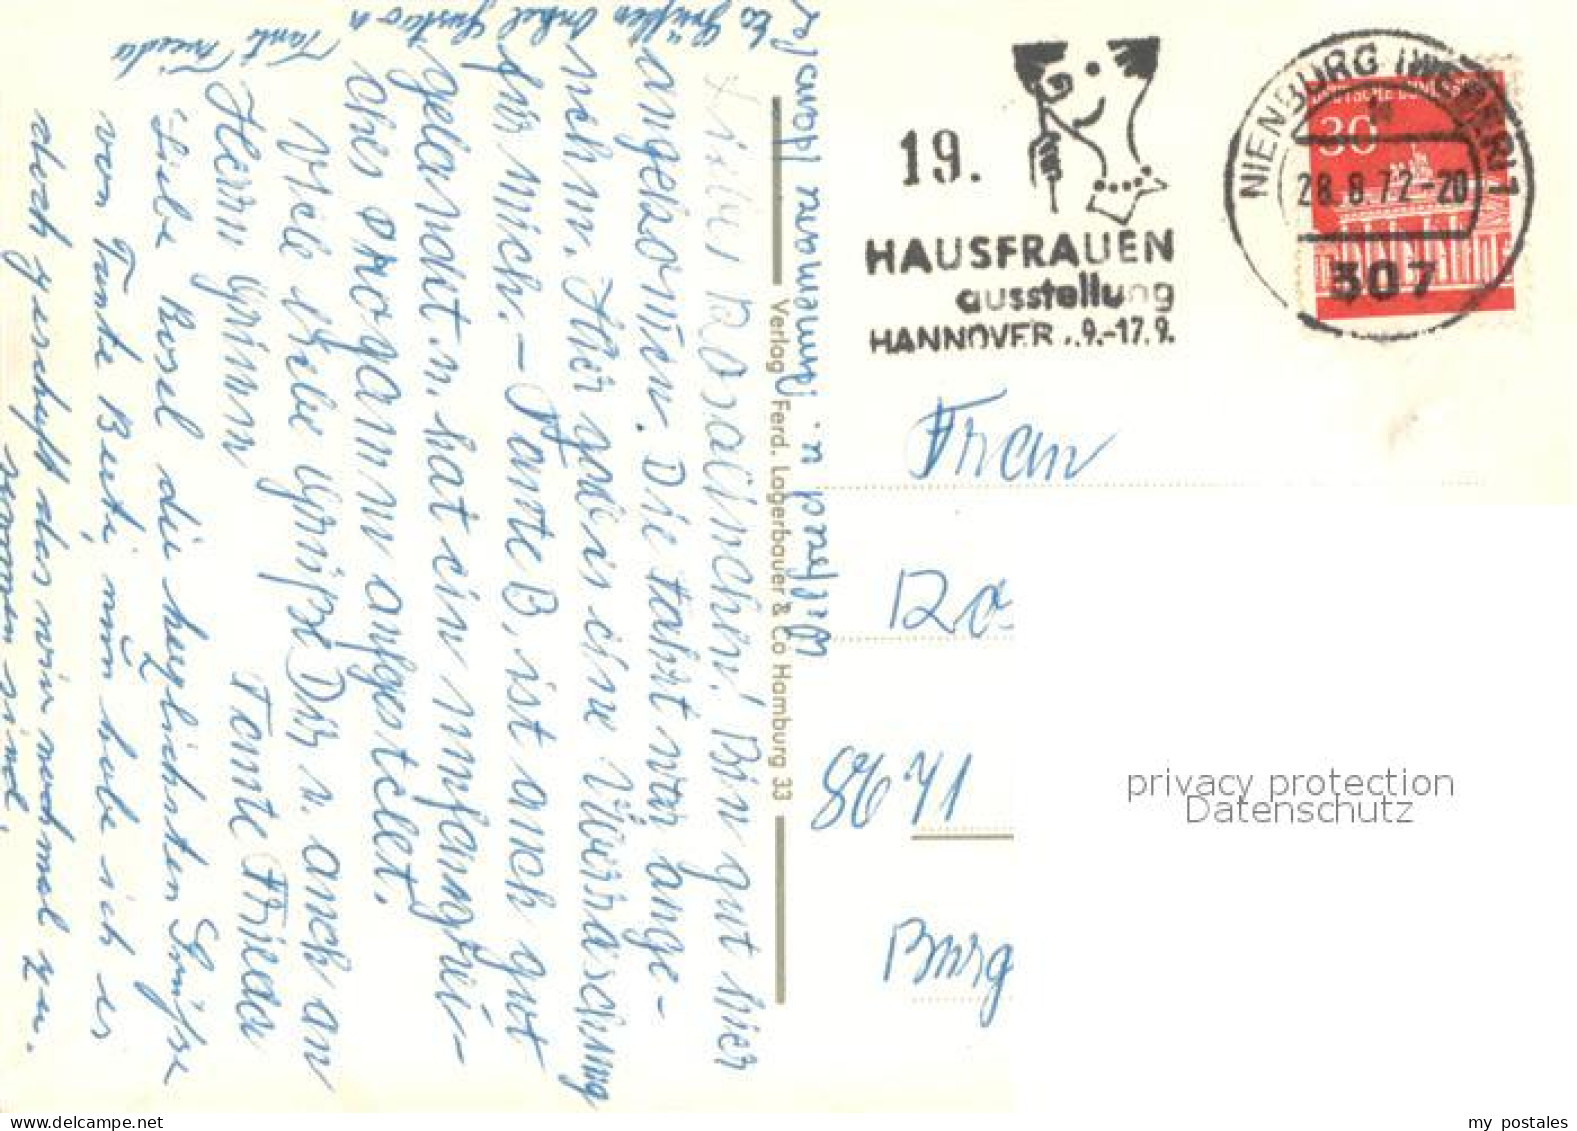 Liebes Rosalinchen! Bin gut hier
angekommen. Die Fahrt war ange-
nehm. Hier gab es eine Überraschung
für mich. – Tante B. ist auch gut
gelandet u. hat ein umfangrei-
ches Programm aufgestellt.
Viele liebe Grüße Dir u. auch an
Herrn Grimm
Tante Frieda
Liebe Rosel die herzlichsten Grüße
von Tante Berti, nun habe ich es
doch geschafft das wir nochmal zu-
sammen sind.
Es grüßen Onkel Gustav u
Tante Frieda
Wilfried u. Hannemarie
Verlag Ferd. Lagerbauer & Co Hamburg 33
19.
HAUSFRAUEN
ausstellung
HANNOVER 9.-17.9.
NIENBURG (WESER) 1
28.8.72-20
307
DEUTSCHE BUNDESPOST
30
Frau
Ro
8671
Burg
privacy protection
Datenschutz
my postales